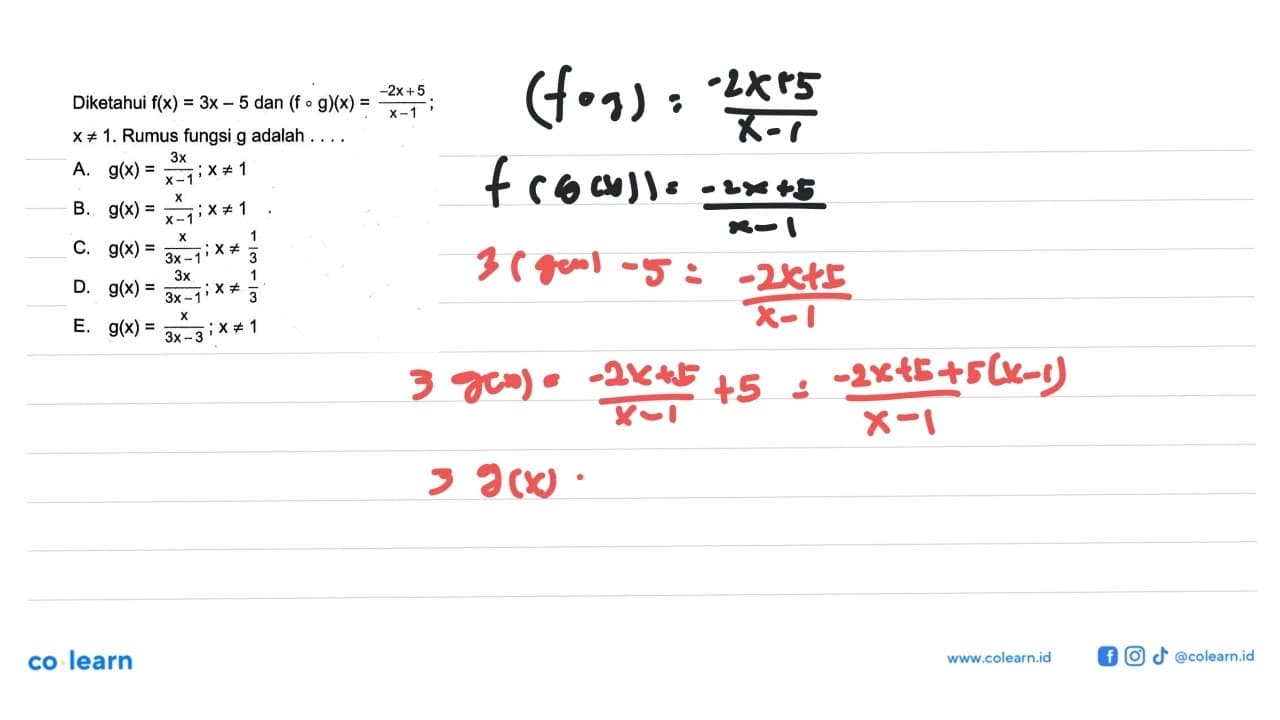 Diketahui f(x) = 3x – 5 dan (f ∘ g)(x) = (-2x+5)/(x-1);
x ≠ 1. Rumus fungsi g adalah . . . .
A. g(x) = 3x/(x-1); x ≠ 1
B. g(x) = x/(x-1); x ≠ 1
C. g(x) = x/(3x-1); x ≠ 1/3
D. g(x) = 3x/(3x-1); x ≠ 1/3
E. g(x) = x/(3x-3); x ≠ 1
(f∘g) = (-2x+5)/(x-1)
f(G(x)) = (-2x+5)/(x-1)
3(g(x)) -5 = (-2x+5)/(x-1)
3 g(x) = (-2x+5)/(x-1) +5 = (-2x+5+5(x-1))/(x-1)
3 g(x) ·
co learn
www.colearn.id
@colearn.id